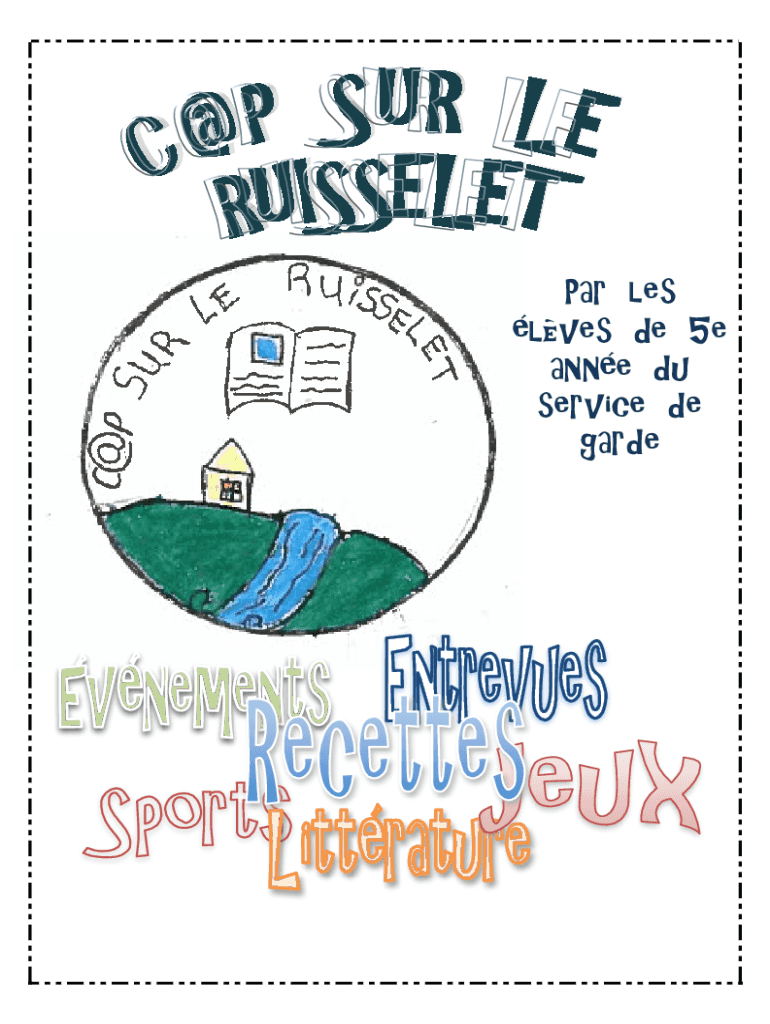 C@P SUR LE
RUISSELET
C@P SUR LE RUISSELET
Par les
élèves de 5e
année du
service de
garde
Événements
Entrevues
Recettes
Jeux
Sports
Littérature